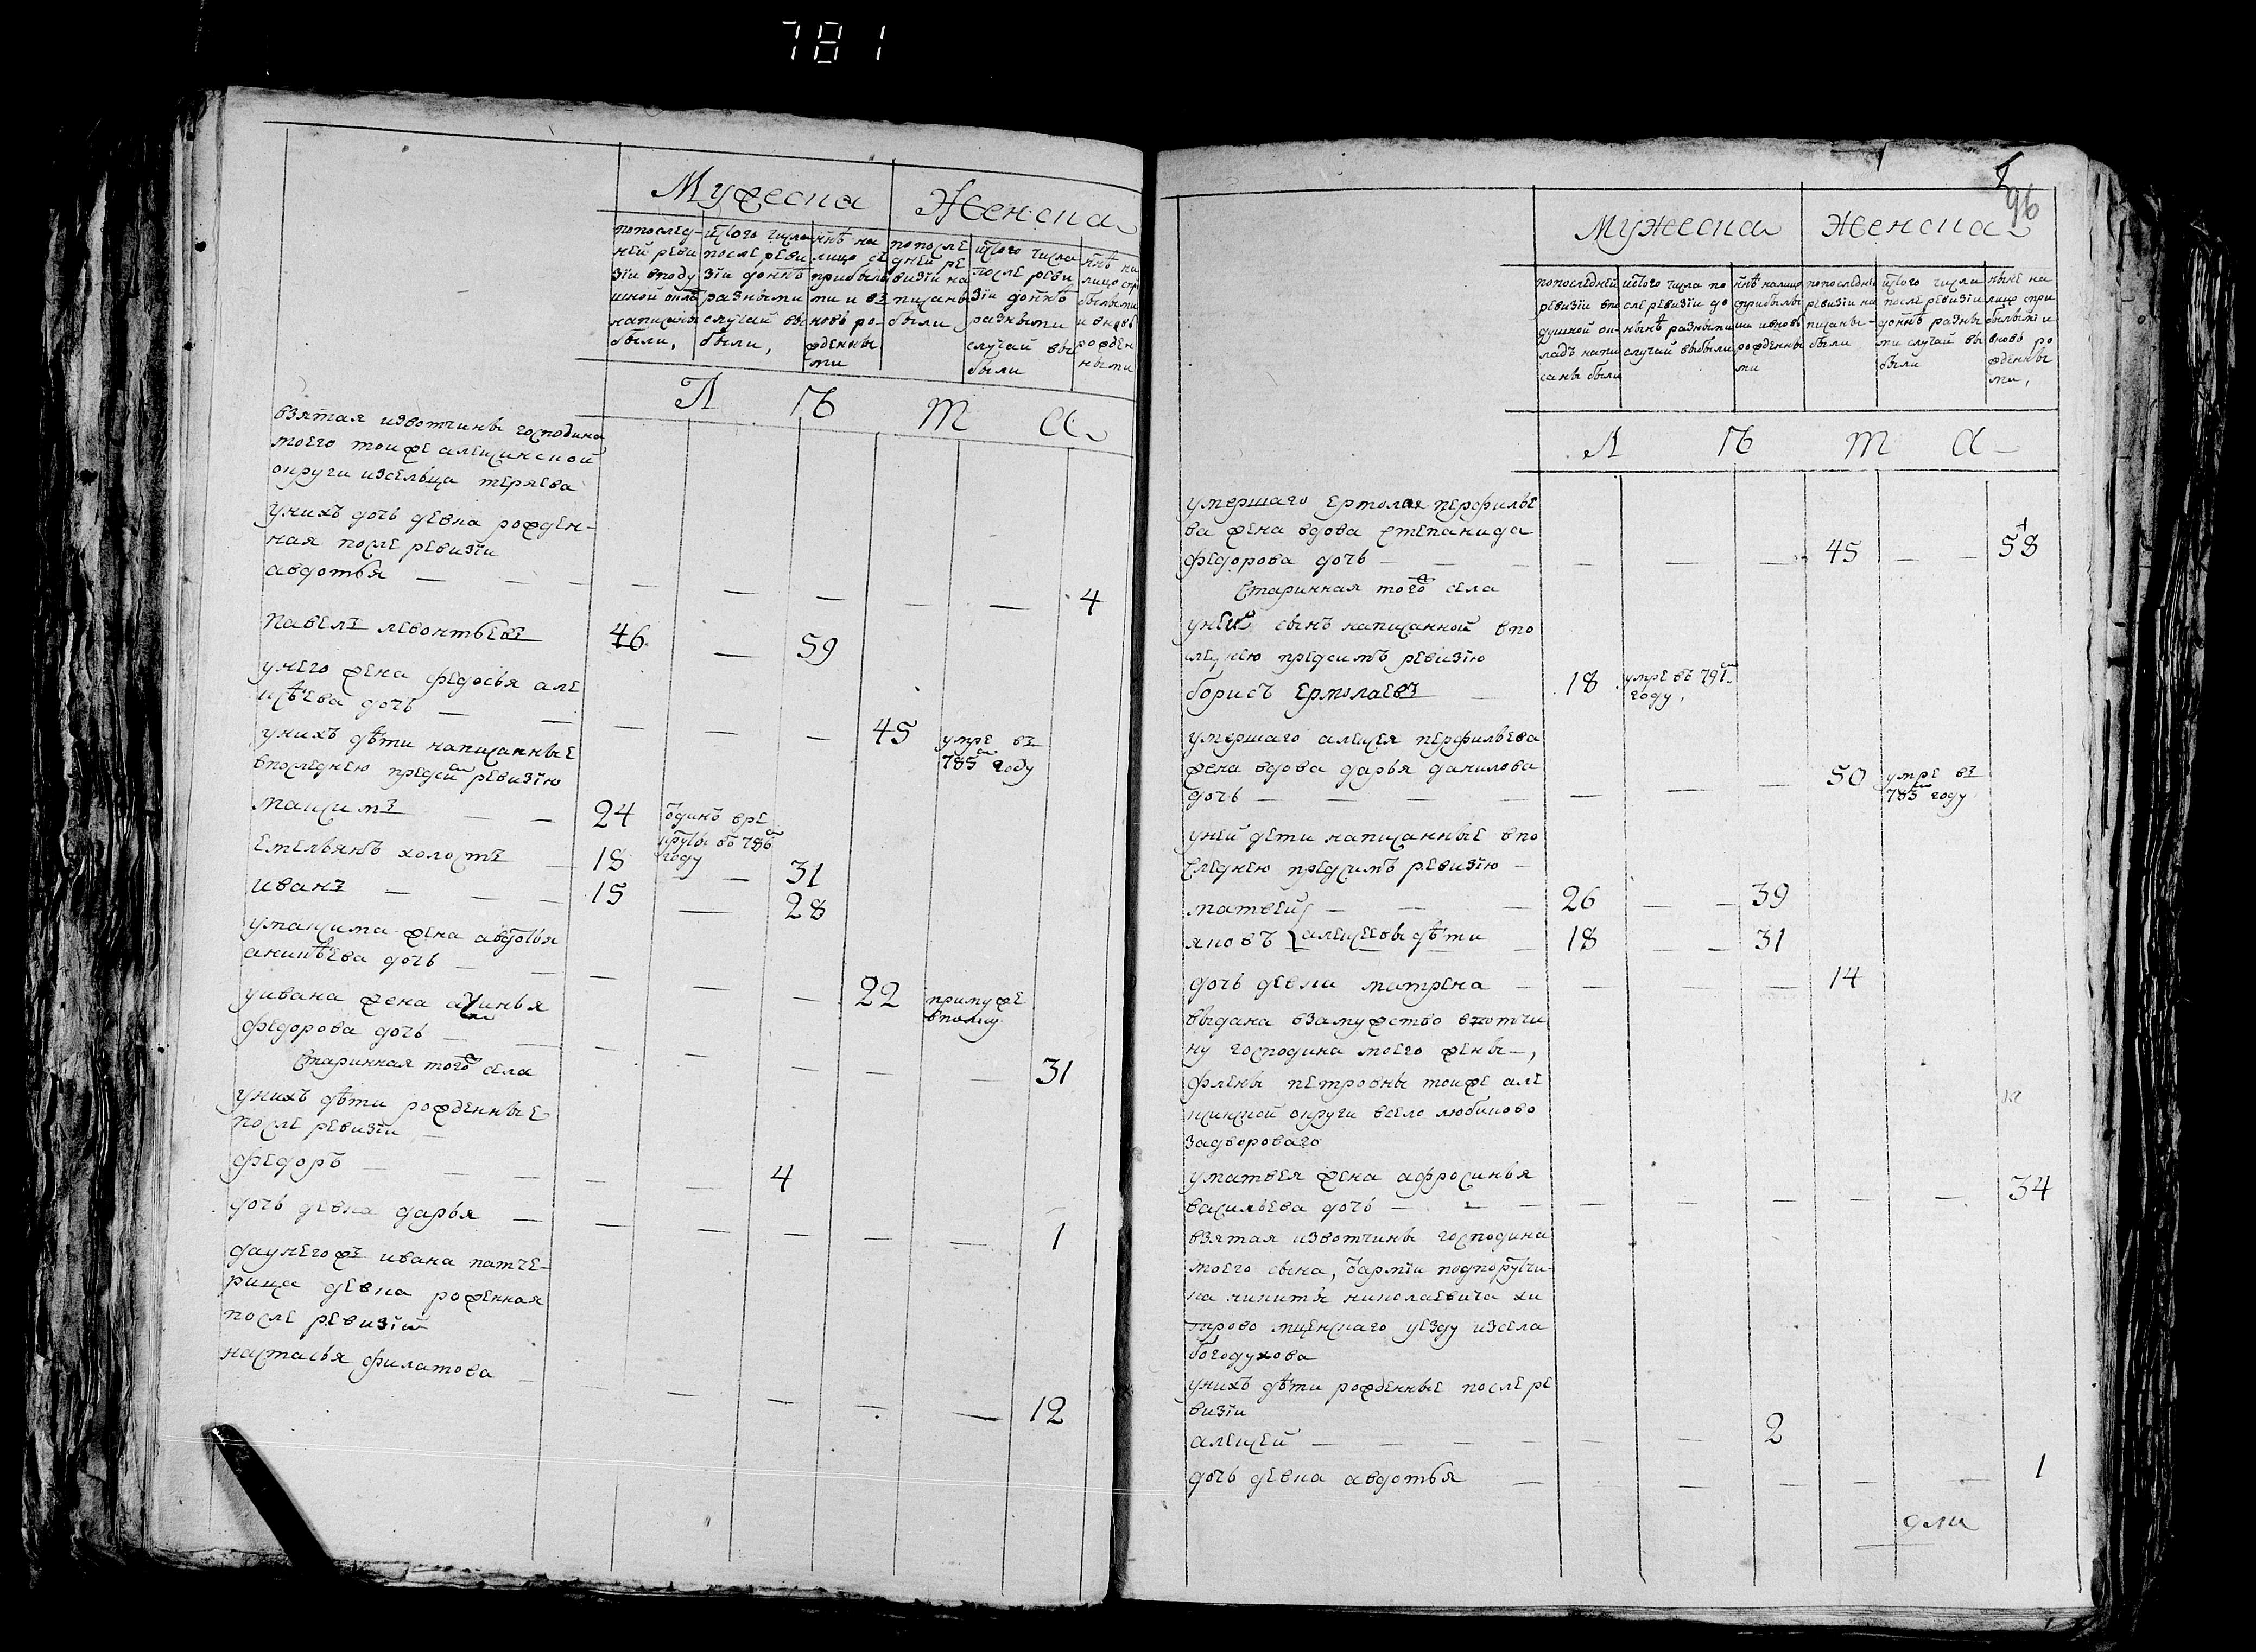 781
Мужеска Женска
попослед-
ней реви
зіи вподу
шной окла
написаны
были,
истого числа
после реви
зіи доннѣ
разными
случаи вы
были,
ннѣ на
лицо съ
прибылы
ми и вз
новь ро-
жденны
ми
попосле
дней ре
визіи на
писаны
были
истого числа
после реви
зіи доннѣ
разными
случаи вы
были
ннѣ на
лицо спри
былыми
и вновь
рожден
ными
Л Ѣ Т А
взятая извотчины господина
моего тоиже алексинской
округи изсельца теряева
унихъ дочь девка рожден-
ная после ревизіи
авдотья — 4
павелъ левонтьевъ 46 — 59
унего жена федосья але
ксѣева дочь — 45 умре въ
785м году
унихъ дѣти написанные
впоследнею предсимъ ревизію
максимъ — 24 одинъ вре
круты во 786м
году
емельянъ холостъ 18 — 31
иванъ — 15 — 28
умаксима жена авдотья
аникѣева дочь — 22 примуже
вполку
уивана жена аксинья
федорова дочь — 31
Старинная тогожъ села
унихъ дѣти рожденные
после ревизіи —
федоръ — 4
дочь девка дарья — 1
даунегожъ ивана патче-
рица девка роженная
после ревизіи
настасья филатова — 12
96
Мужеска Женска
попоследней
ревизіи впо
душной ок-
ладъ напи
саны были
истого числа по
сле ревизіи до
нынѣ разными
случаи выбыли
ннѣ налицо
сприбылы
ми ивновь
рожденны
ми
попоследне
ревизіи на
писаны
были
истого числа
после ревизіи
доннѣ разны
ми случаи вы
были
ныне на
лицо спри
былыми и
вновь ро
жденны
ми,
Л Ѣ Т А
умершаго ермолая перфилье
ва жена вдова степанида
федорова дочь — 45 — 58
Старинная тогожъ села
уней сынъ написанной впо
следнею предсимъ ревизію
борисъ ермолаевъ 18 умре въ 791м
году,
умершаго алексея перфильева
жена вдова дарья данилова
дочь — 50 умре въ
783м году
уней дети написанные впо
следнею предсимъ ревизію —
матвей — 26 — 39
яковъ алексеевы дѣти 18 — 31
дочь девки матрена — 14
выдана взамужство вотчи
ну господина моего жены —,
флены петровны тоиже але
ксинской округи всело любиково
задвороваго
уматвея жена афросинья
васильева дочь — 34
взятая извотчины господина
моего сына, армии подпоручи
ка никиты николаевича хи
трово мценскаго уезду изсела
богодухова
унихъ дѣти рожденные после ре
визіи
алексей — 2
дочь девка авдотья — 1